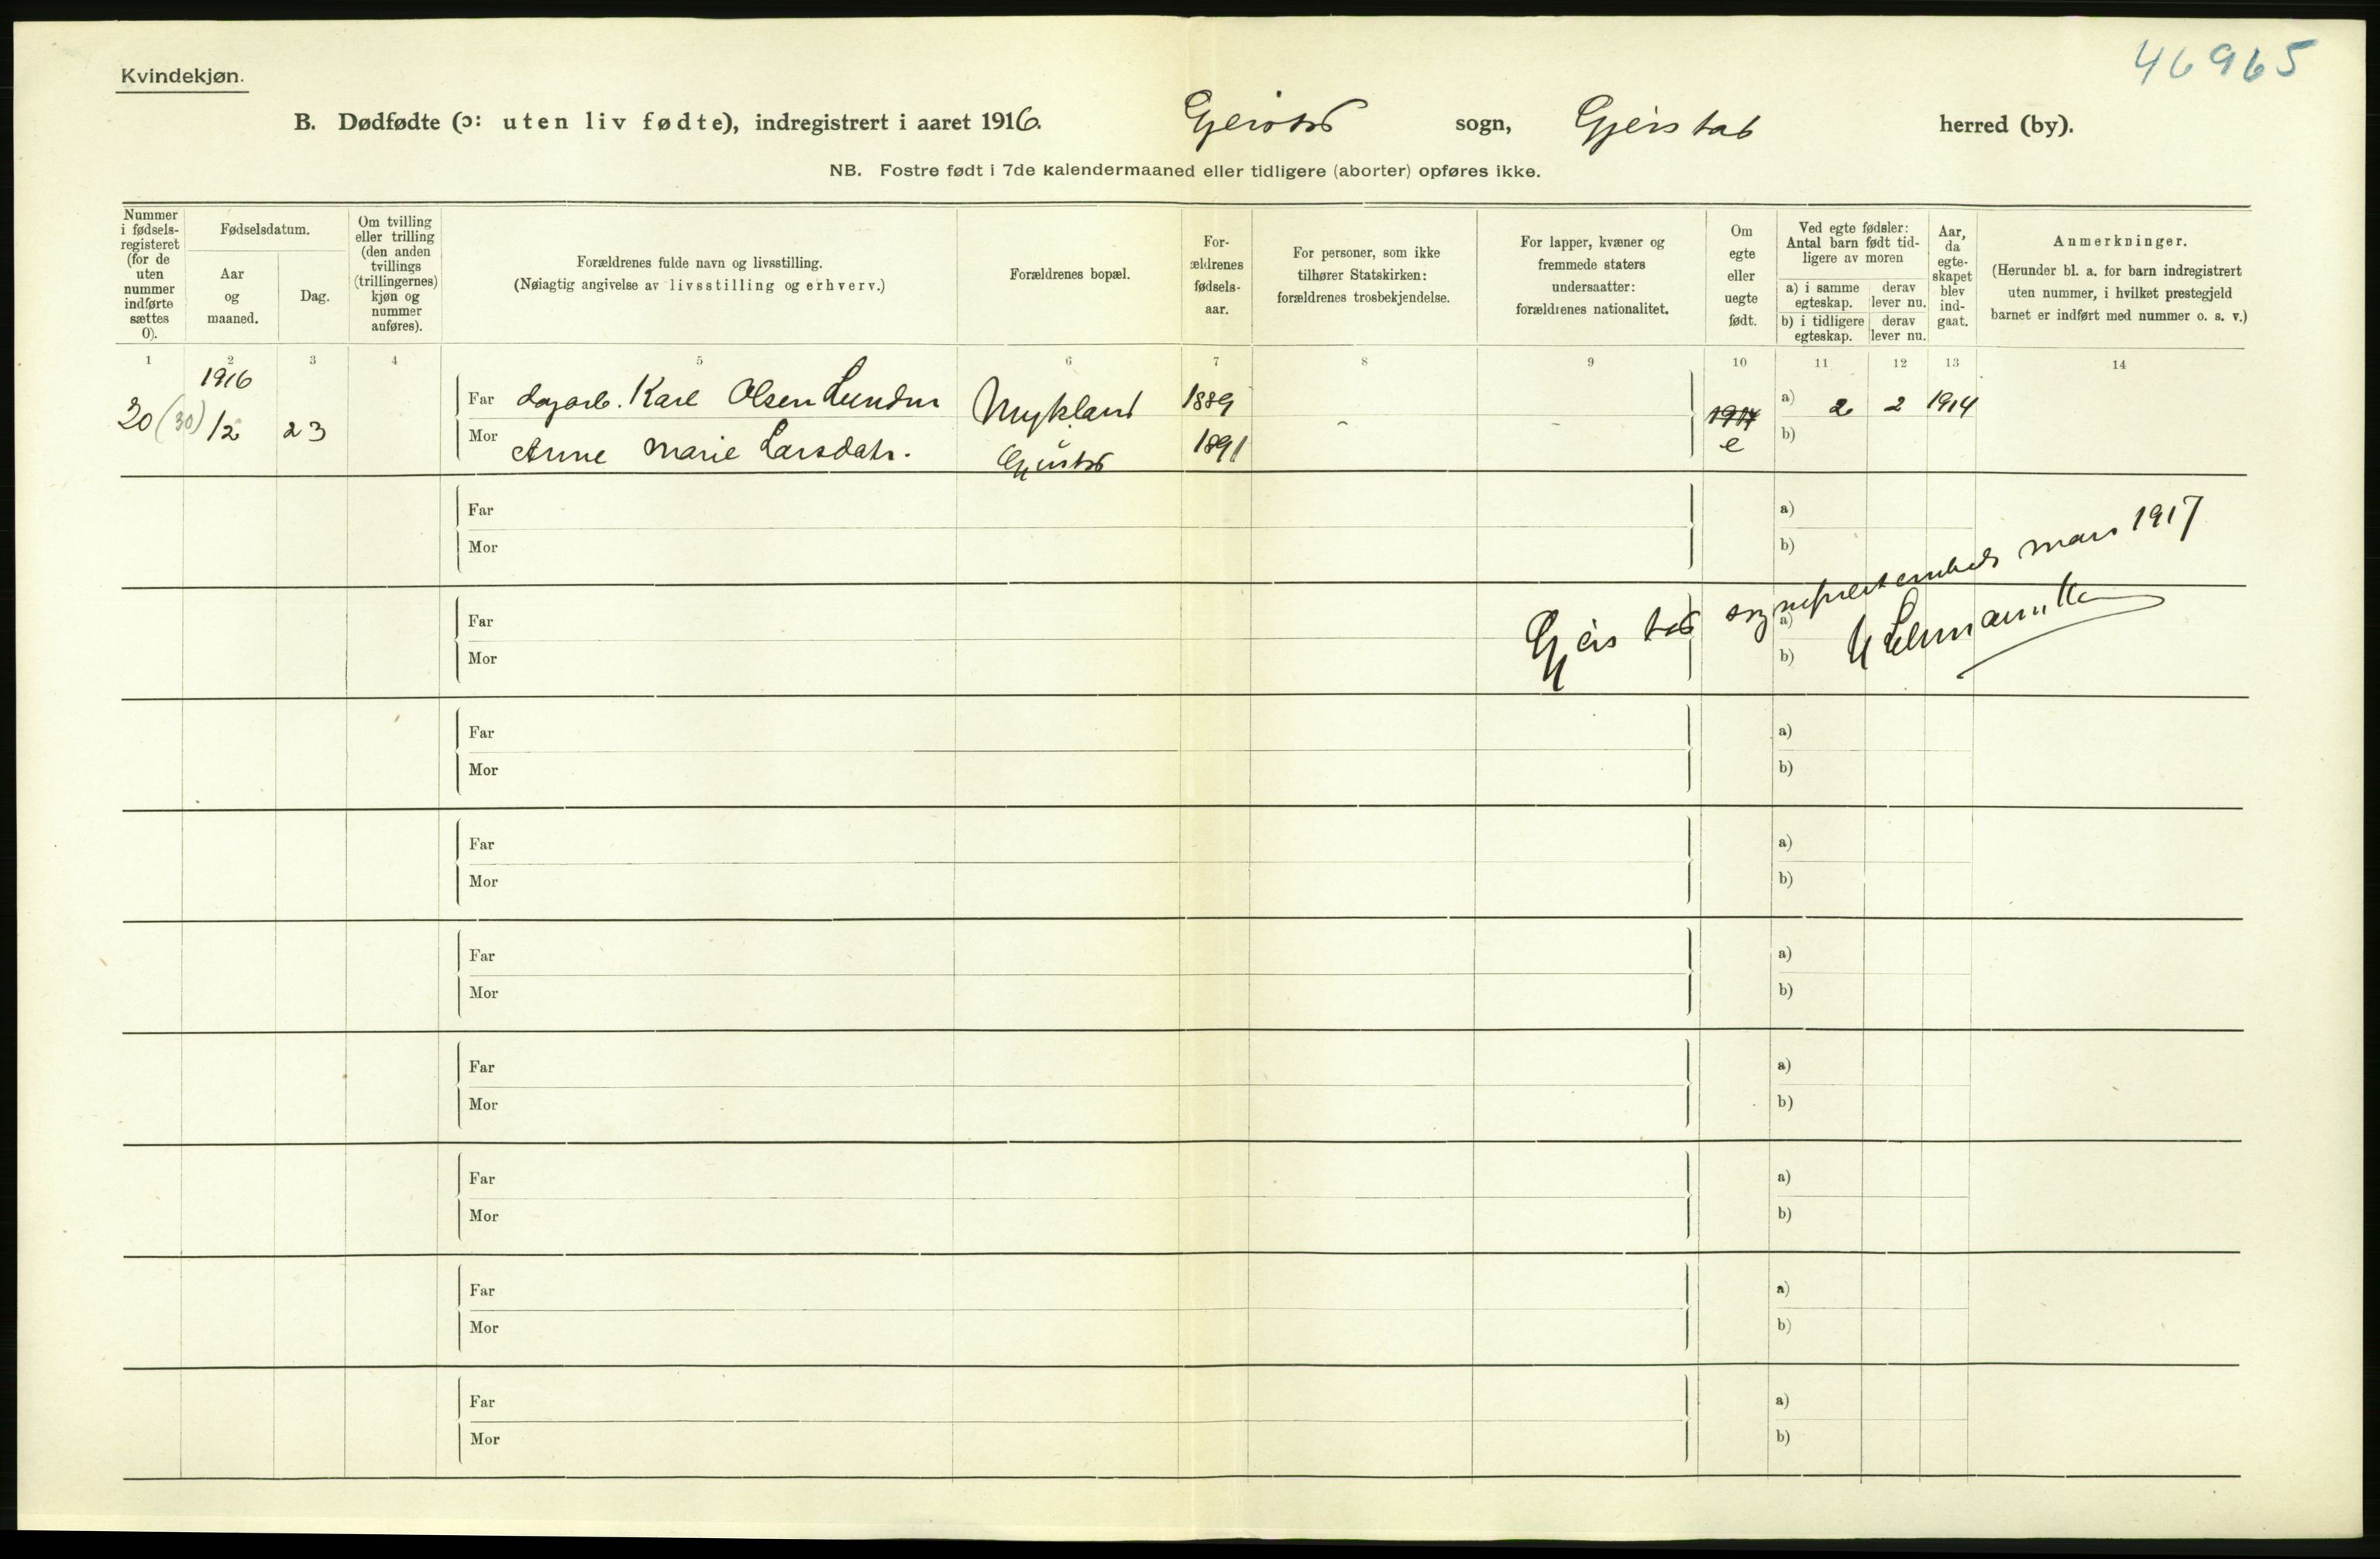 46965
Kvindekjøn.
B. Dødfødte (ɔ: uten liv fødte), indregistrert i aaret 1916. Gjerstad sogn, Gjerstad herred (by).
NB. Fostre født i 7de kalendermaaned eller tidligere (aborter) opføres ikke.
Nummer i fødsels-registeret (for de uten nummer indførte sættes 0).
Fødselsdatum.
Aar og maaned.
Dag.
Om tvilling eller trilling (den anden tvillings (trillingernes) kjøn og nummer anføres).
Forældrenes fulde navn og livsstilling.
(Nøiagtig angivelse av livsstilling og erhverv.)
Forældrenes bopæl.
For-ældrenes fødsels-aar.
For personer, som ikke tilhører Statskirken: forældrenes trosbekjendelse.
For lapper, kvæner og fremmede staters undersaatter: forældrenes nationalitet.
Om egte eller uegte født.
Ved egte fødsler: Antal barn født tid-ligere av moren
a) i samme egteskap.
derav lever nu.
b) i tidligere egteskap.
derav lever nu.
Aar, da egte-skapet blev ind-gaat.
Anmerkninger.
(Herunder bl. a. for barn indregistrert uten nummer, i hvilket prestegjeld barnet er indført med nummer o. s. v.)
1 2 3 4 5 6 7 8 9 10 11 12 13 14
1916
20 (30) 12 23
Far dagarb. Karl Olsen Mykland 1889 - - 1914 a) 2 2 1914
Mor Anne Marie Larsdatr. Gjerstad 1891 e b)
Far a)
Mor b)
Gjerstad sogneprestembede mars 1917
Far a)
Mor b)
Far a)
Mor b)
Far a)
Mor b)
Far a)
Mor b)
Far a)
Mor b)
Far a)
Mor b)
Far a)
Mor b)
Far a)
Mor b)